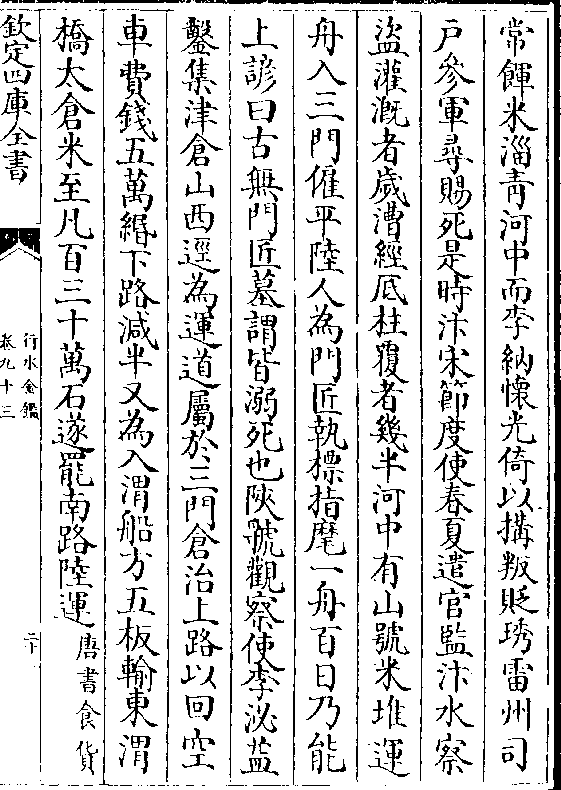 常餫米淄青河中而李納懷光倚以搆叛貶琇雷州司
戸參軍尋賜死是時汴宋節度使春夏遣官監汴水察
盜灌溉者歲漕經底柱覆者幾半河中有山號米堆運
舟入三門僱平陸人為門匠執標指麾一舟百日乃能
上諺曰古無門匠墓謂皆溺死也陝虢觀察使李泌益
鑿集津倉山西逕為運道屬於三門倉治上路以回空
車費錢五萬緡下路減半又為入渭船方五板輸東渭
橋太倉米至凡百三十萬石遂罷南路陸運唐書食貨
欽定四庫全書
行水金鑑
卷九十三
二十